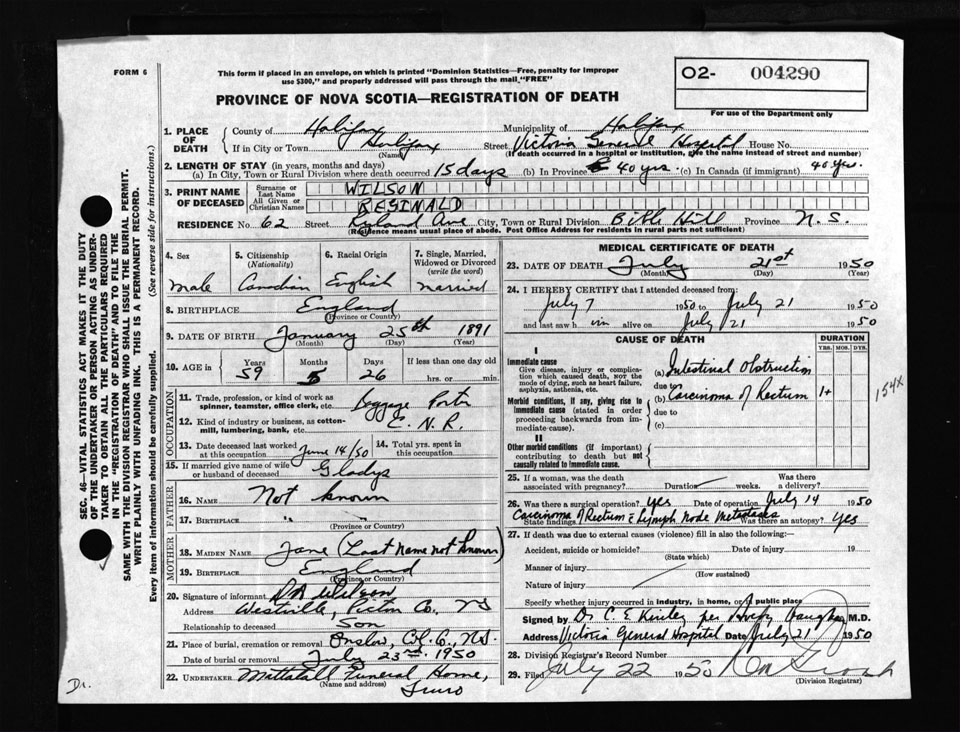 FORM 6
This form if placed in an envelope, on which is printed "Dominion Statistics—Free, penalty for improper
use $300," and properly addressed will pass through the mail, "FREE"
O2- 004290
For use of the Department only
PROVINCE OF NOVA SCOTIA—REGISTRATION OF DEATH
1. PLACE OF DEATH { County of Halifax Municipality of Halifax
If in City or Town Halifax Street Victoria General Hospital House No.
(Name) (If death occurred in a hospital or institution, give the name instead of street and number)
2. LENGTH OF STAY (in years, months and days)
(a) In City, Town or Rural Division where death occurred 15 days (b) In Province 40 yrs. (c) In Canada (if immigrant) 40 yrs.
3. PRINT NAME OF DECEASED Surname or Last Name WILSON
All Given or Christian Names REGINALD
RESIDENCE No 62 Street Ryland Ave City, Town or Rural Division Bible Hill Province N. S.
(Residence means usual place of abode. Post Office Address for residents in rural parts not sufficient)
4. Sex
male
5. Citizenship (Nationality)
Canadian
6. Racial Origin
English
7. Single, Married, Widowed or Divorced (write the word)
married
8. BIRTHPLACE England
(Province or Country)
9. DATE OF BIRTH January 25th 1891
(Month) (Day) (Year)
10. AGE in { Years 59 Months 5 Days 26 If less than one day old
hrs. or min.
OCCUPATION
11. Trade, profession, or kind of work as
spinner, teamster, office clerk, etc. Baggage Porter
12. Kind of industry or business, as cotten-
mill, lumbering, bank, etc. C. N. R.
13. Date deceased last worked
at this occupation June 14/50
14. Total yrs. spent in
this occupation
15. If married give name of wife
or husband of deceased Gladys
FATHER
16. NAME Not known
17. BIRTHPLACE " "
(Province or Country)
MOTHER
18. MAIDEN NAME Jane (Last name not known)
19. BIRTHPLACE England
(Province or Country)
20. Signature of informant Wilson
Address Westville, Pictou Co., NS
Relationship to deceased Son
21. Place of burial, cremation or removal Onslow, Col. Co., N.S.
Date of burial or removal July 23rd 1950
22. UNDERTAKER Mattatall Funeral Home,
(Name and address) Truro
MEDICAL CERTIFICATE OF DEATH
23. DATE OF DEATH July 21st 1950
(Month) (Day) (Year)
24. I HEREBY CERTIFY that I attended deceased from:
July 7 1950 to July 21 1950
and last saw h im alive on July 21 1950
CAUSE OF DEATH
DURATION
YRS. MOS. DYS.
I
Immediate cause
Give disease, injury or complica-
tion which caused death, NOT the
mode of dying, such as heart failure,
asphyxia, asthenia, etc.
(a) Intestinal Obstruction
due to
(b) Carcinoma of Rectum 1+
154X
Morbid conditions, if any, giving rise to
Immediate cause (stated in order
proceeding backwards from im-
mediate cause).
due to
(c)
II
Other morbid conditions (if important)
contributing to death but not
causally related to immediate cause.
25. If a woman, was the death
associated with pregnancy? Duration weeks. Was there
a delivery?
26. Was there a surgical operation? yes Date of operation July 14 1950
State findings Carcinoma of Rectum c Lymph Node Metastases Was there an autopsy? Yes
27. If death was due to external causes (violence) fill in also the following:—
Accident, suicide or homicide? Date of injury 19
(State which)
Manner of injury
(How sustained)
Nature of injury
Specify whether injury occurred in industry, in home, or in public place
Signed by Dr. C E Kinley per M.D.
Address Victoria General Hospital Date July 21 1950
28. Division Registrar's Record Number
29. Filed July 22 1950
(Division Registrar)
Dr.
SEC. 46—VITAL STATISTICS ACT MAKES IT THE DUTY
OF THE UNDERTAKER OR PERSON ACTING AS UNDER-
TAKER TO OBTAIN ALL THE PARTICULARS REQUIRED
IN THE "REGISTRATION OF DEATH" AND TO FILE THE
SAME WITH THE DIVISION REGISTRAR WHO SHALL ISSUE THE BURIAL PERMIT.
WRITE PLAINLY WITH UNFADING INK. THIS IS A PERMANENT RECORD.
Every item of information should be carefully supplied. (See reverse side for instructions.)